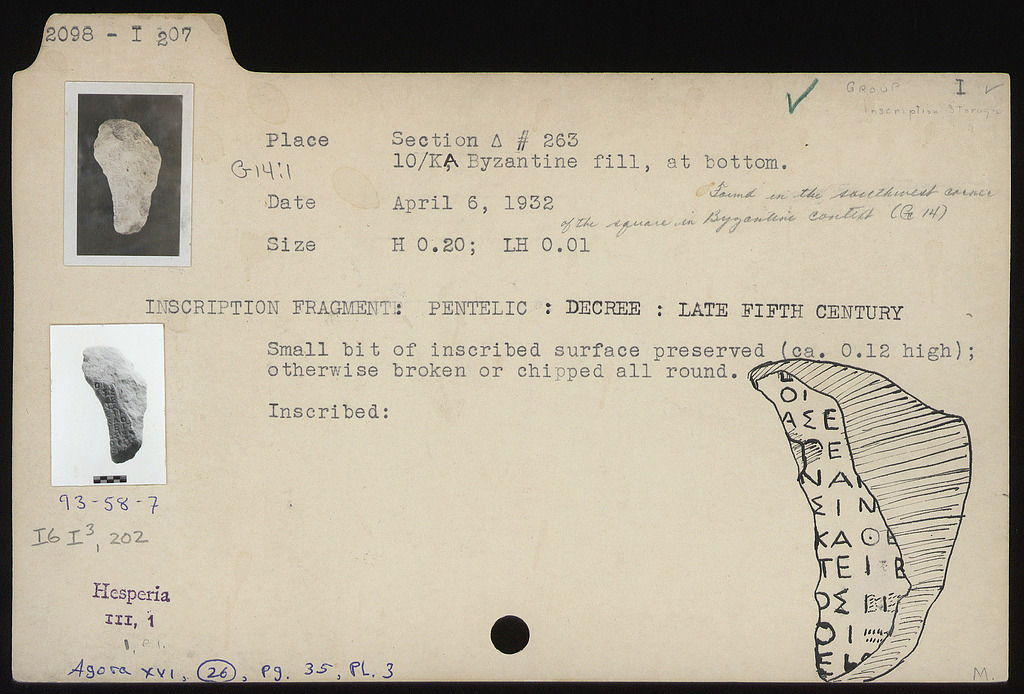 2098 - I 207
GROUP I
Inscription Storage
Place Section Δ # 263
10/ΚΛ Byzantine fill, at bottom.
G14:1
Found in the southwest corner
of the square in Byzantine context (G 14)
Date April 6, 1932
Size H 0.20; LH 0.01
INSCRIPTION FRAGMENT: PENTELIC : DECREE : LATE FIFTH CENTURY
Small bit of inscribed surface preserved (ca. 0.12 high);
otherwise broken or chipped all round.
Inscribed:
ΟΙ
ΑΣΕ
ΡΕ
ΝΑΙ
ΣΙΝ
ΚΑΘΕ
ΤΕΙΕ
ΟΣ
ΟΙ
Ε
93-58-7
IG I³, 202
Hesperia
III, 1
Agora XVI, 26, pg. 35, Pl. 3
M.